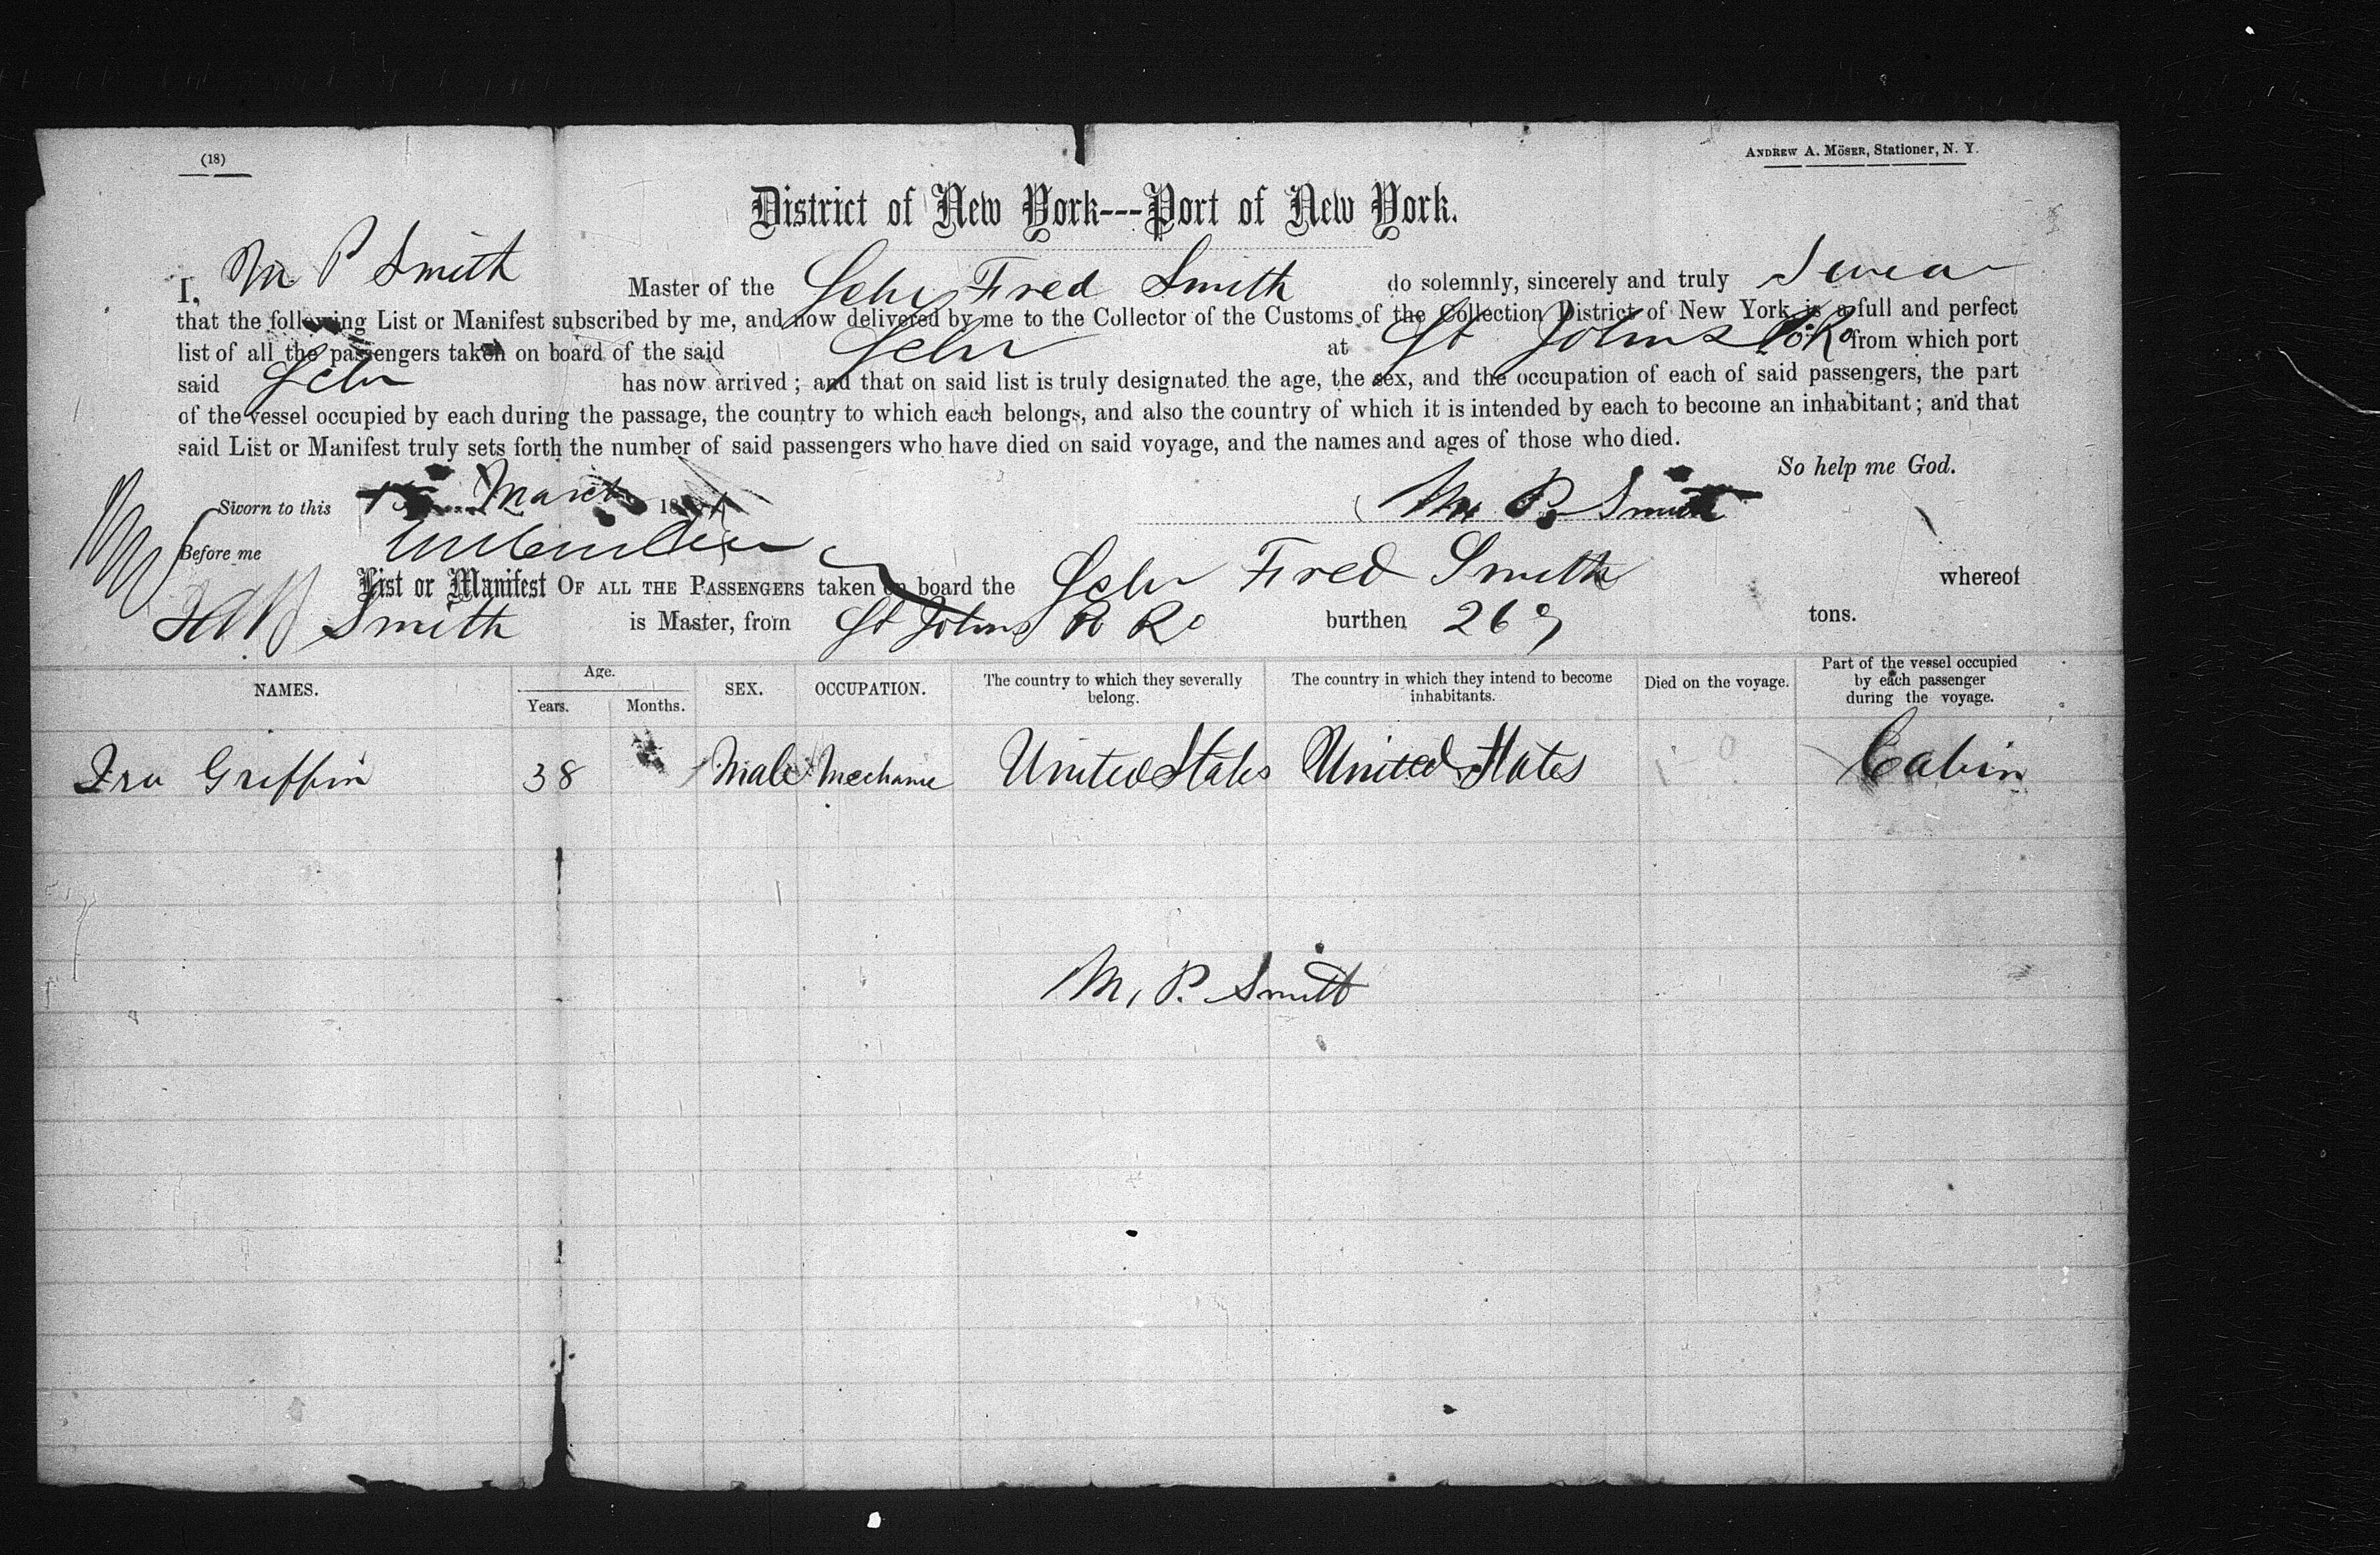 (18)
ANDREW A. MÖSER, Stationer, N. Y.
District of New York---Port of New York.
I, M P Smith Master of the Schr Fred Smith do solemnly, sincerely and truly Swear
that the following List or Manifest subscribed by me, and now delivered by me to the Collector of the Customs of the Collection District of New York is a full and perfect
list of all the passengers taken on board of the said Schr at St Johns from which port
said Schr has now arrived; and that on said list is truly designated the age, the sex, and the occupation of each of said passengers, the part
of the vessel occupied by each during the passage, the country to which each belongs, and also the country of which it is intended by each to become an inhabitant; and that
said List or Manifest truly sets forth the number of said passengers who have died on said voyage, and the names and ages of those who died.
So help me God.
Sworn to this March 18 M. P. Smith
Before me
List or Manifest OF ALL THE PASSENGERS taken on board the Schr Fred Smith whereof
Smith is Master, from St Johns burthen 269 tons.
NAMES. Age. Years. Months. SEX. OCCUPATION. The country to which they severally belong. The country in which they intend to become inhabitants. Died on the voyage. Part of the vessel occupied by each passenger during the voyage.
Ira Griffin 38 Male Mechanic United States United States Cabin
M. P. Smith